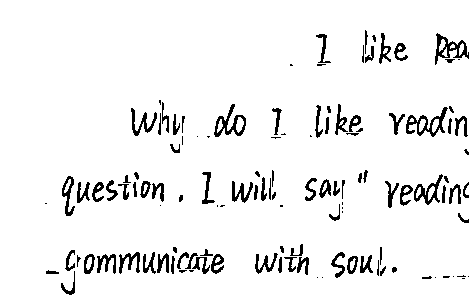 I like Rea
Why do I like reading
question. I will say " reading
gommunicate with soul.